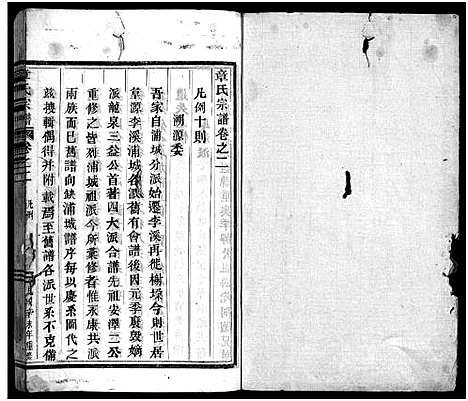 章氏宗譜卷之二
凡例十則
溯源委
吾家自浦城分派始遷李溪再徙榭垜今所世居
章源李溪浦城祖派舊有會譜後因元季襄毅嫡
派龍泉三益公首著四大派合譜先祖安澤二公
重修之皆列浦城祖派今所彙修者惟永康共派
兩族而已舊譜向缺浦城譜序每以慶系圖代之
茲搜輯偶得并附載焉至舊譜各派世系不克備
章氏宗譜
卷之二
凡例